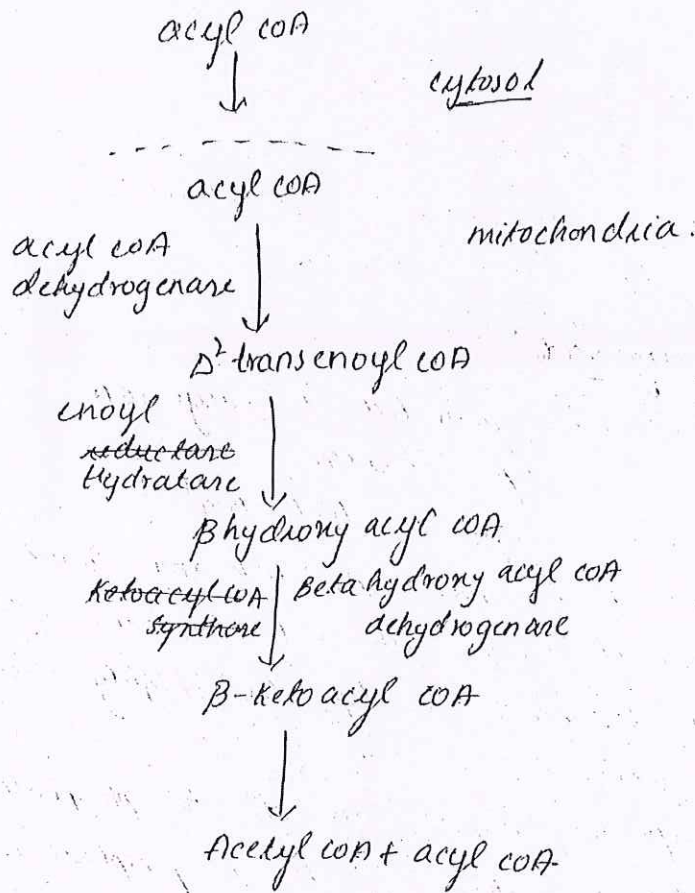 acyl coA
cytosol
acyl coA
mitochondria.
acyl coA
dehydrogenase
Δ²-transenoyl coA
enoyl
reductase
Hydratase
β hydroxy acyl coA
Ketoacyl coA
synthase
Beta hydroxy acyl coA
dehydrogenase
β-Ketoacyl coA
Acetyl coA + acyl coA